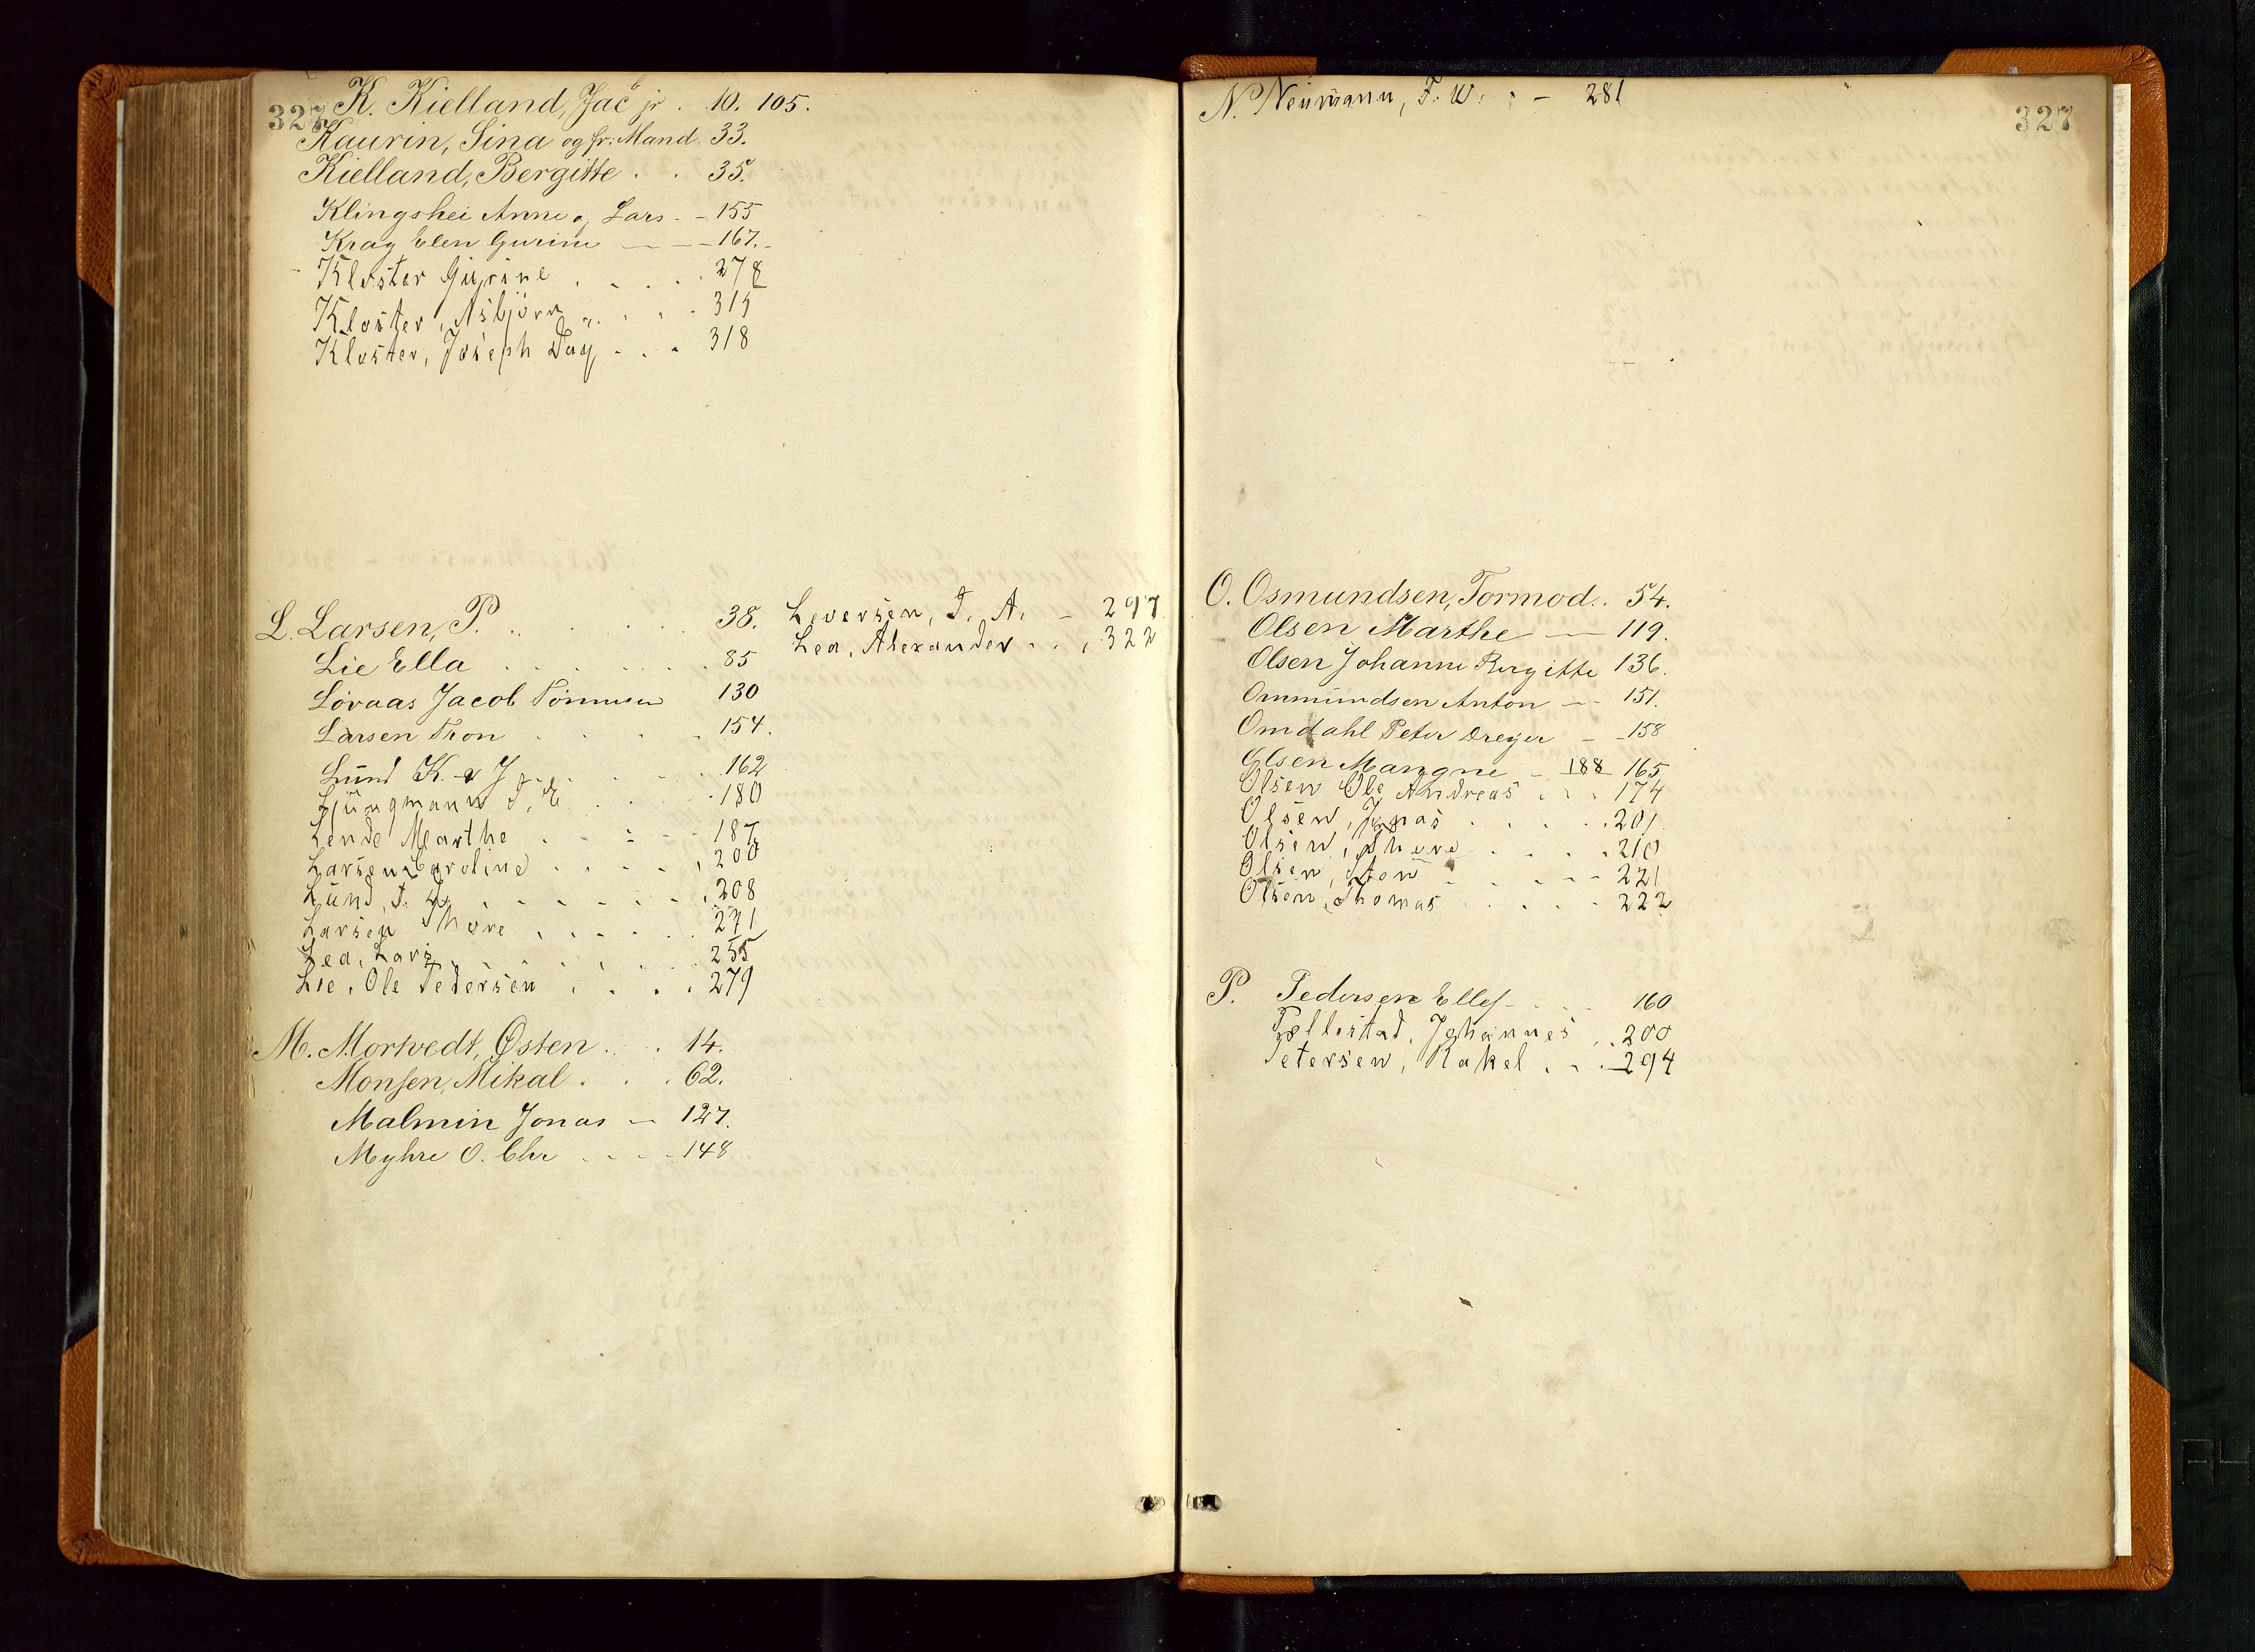 327
K. Kielland, Jac jr . 10. 105.
Kaurin, Sina og fr: Mand. 33.
Kielland, Bergitte . . 35.
Klingshei Anne og Lars - - 155
Krag Elen Gurine - - - 167.-
Kloster Gurine . . . . 278
Kloster, Asbjörn . . . . 315
Kloster, Joseph Dag . . . 318
L. Larsen, P. . . . . . 38.
Lie Ella . . . . . . . 85
Lövaas Jacob Tönnesen 130
Larsen Tron . . . . 154.
Lund K. J. . . . . 162
Ljungmann . . . 180
Lende Marthe . . - - 187
Larsen Caroline . . . . 200
Lund, T. . . . . . . 208
Larsen Thore . . . . . 271
Lea, Lars . . . . . . 255
Lie, Ole Pedersen . . . . 279
Leversen, T. A. - 297
Lea, Alexander . . . 322
M. Mortvedt, Østen . . . 14.
Monsen, Mikal . . . 62.
Malmin Jonas - 127.
Myhre O. Chr . . . - 148
327
N. Neumann, F. W. . - 281
O. Osmundsen, Tormod . . 54.
Olsen Marthe - - 119.
Olsen Johanne Bergitte 136.
Ommundsen Anton - - 151.
Omdahl Peter Dreyer - - 158
Olsen Mangne - 188 165
Olsen Ole Andreas . . . 174
Olsen, Jonas . . . . . 201
Olsen, Thore . . . . 210
Olsen, . - . - - 221
Olsen, Thomas . . . . - 222
P. Pedersen Ellef - . . . 160
Pollestad, Johannes . . 200
Petersen, Rakel . . . 294